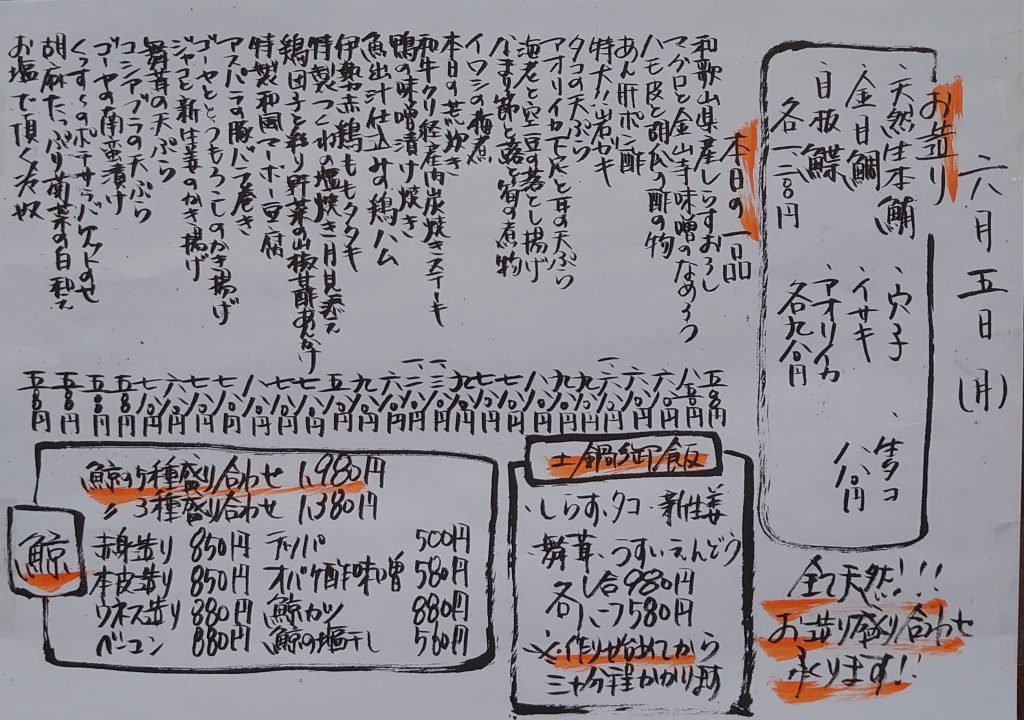 六月五日(月)
お造り
・天然生本鮪
・金目鯛
・目板鰈
各
・穴子
・イサキ
・アオリイカ
各九八〇円
・生タコ
八八〇円
本日の一品
和歌山県産しらすおろし 五八〇円
マグロと金山寺味噌のなめろう 八八〇円
ハモ皮と胡瓜の酢の物 六八〇円
あん肝ポン酢 六八〇円
特大!岩ガキ
タコの天ぷら 九八〇円
アオリイカ下足と耳の天ぷら 九八〇円
海老と空豆の落とし揚げ 八八〇円
なまり節と蕗と筍の煮物 七八〇円
イワシの梅煮 七八〇円
本日の荒炊き 九八〇円
和牛クリ経産肉炭焼きステーキ
鴨の味噌漬け焼き
魚出汁仕込みの鶏ハム 六八〇円
伊勢赤鶏ももタタキ 九八〇円
特製つくねの塩焼き 月見添え 五八〇円
鶏団子と彩り野菜の山椒甘酢あんかけ
特製和風マーボー豆腐 八八〇円
アスパラの豚バラ巻き 七八〇円
ゴーヤととうもろこしのかき揚げ 七八〇円
ジャコと新生姜のかき揚げ 六八〇円
舞茸の天ぷら 七八〇円
コシアブラの天ぷら
ゴーヤの南蛮漬け 五八〇円
ポテサラバケットのせ
胡麻たっぷり菊菜の白和え 五八〇円
お塩で頂く冷奴 五八〇円
全て天然!!!
お造り盛り合わせ
承ります!!
土鍋御飯
・しらす・タコ・新生姜
・舞茸・うすいえんどう
各二合980円
各一合580円
※作り始めてから
三十分程かかります
鯨
鯨の5種盛り合わせ 1,980円
〃 3種盛り合わせ 1,380円
赤身造り 850円 テッパ 500円
本皮造り 850円 オバケ酢味噌 580円
ウネス造り 880円 鯨カツ 880円
ベーコン 880円 鯨の塩干し 580円